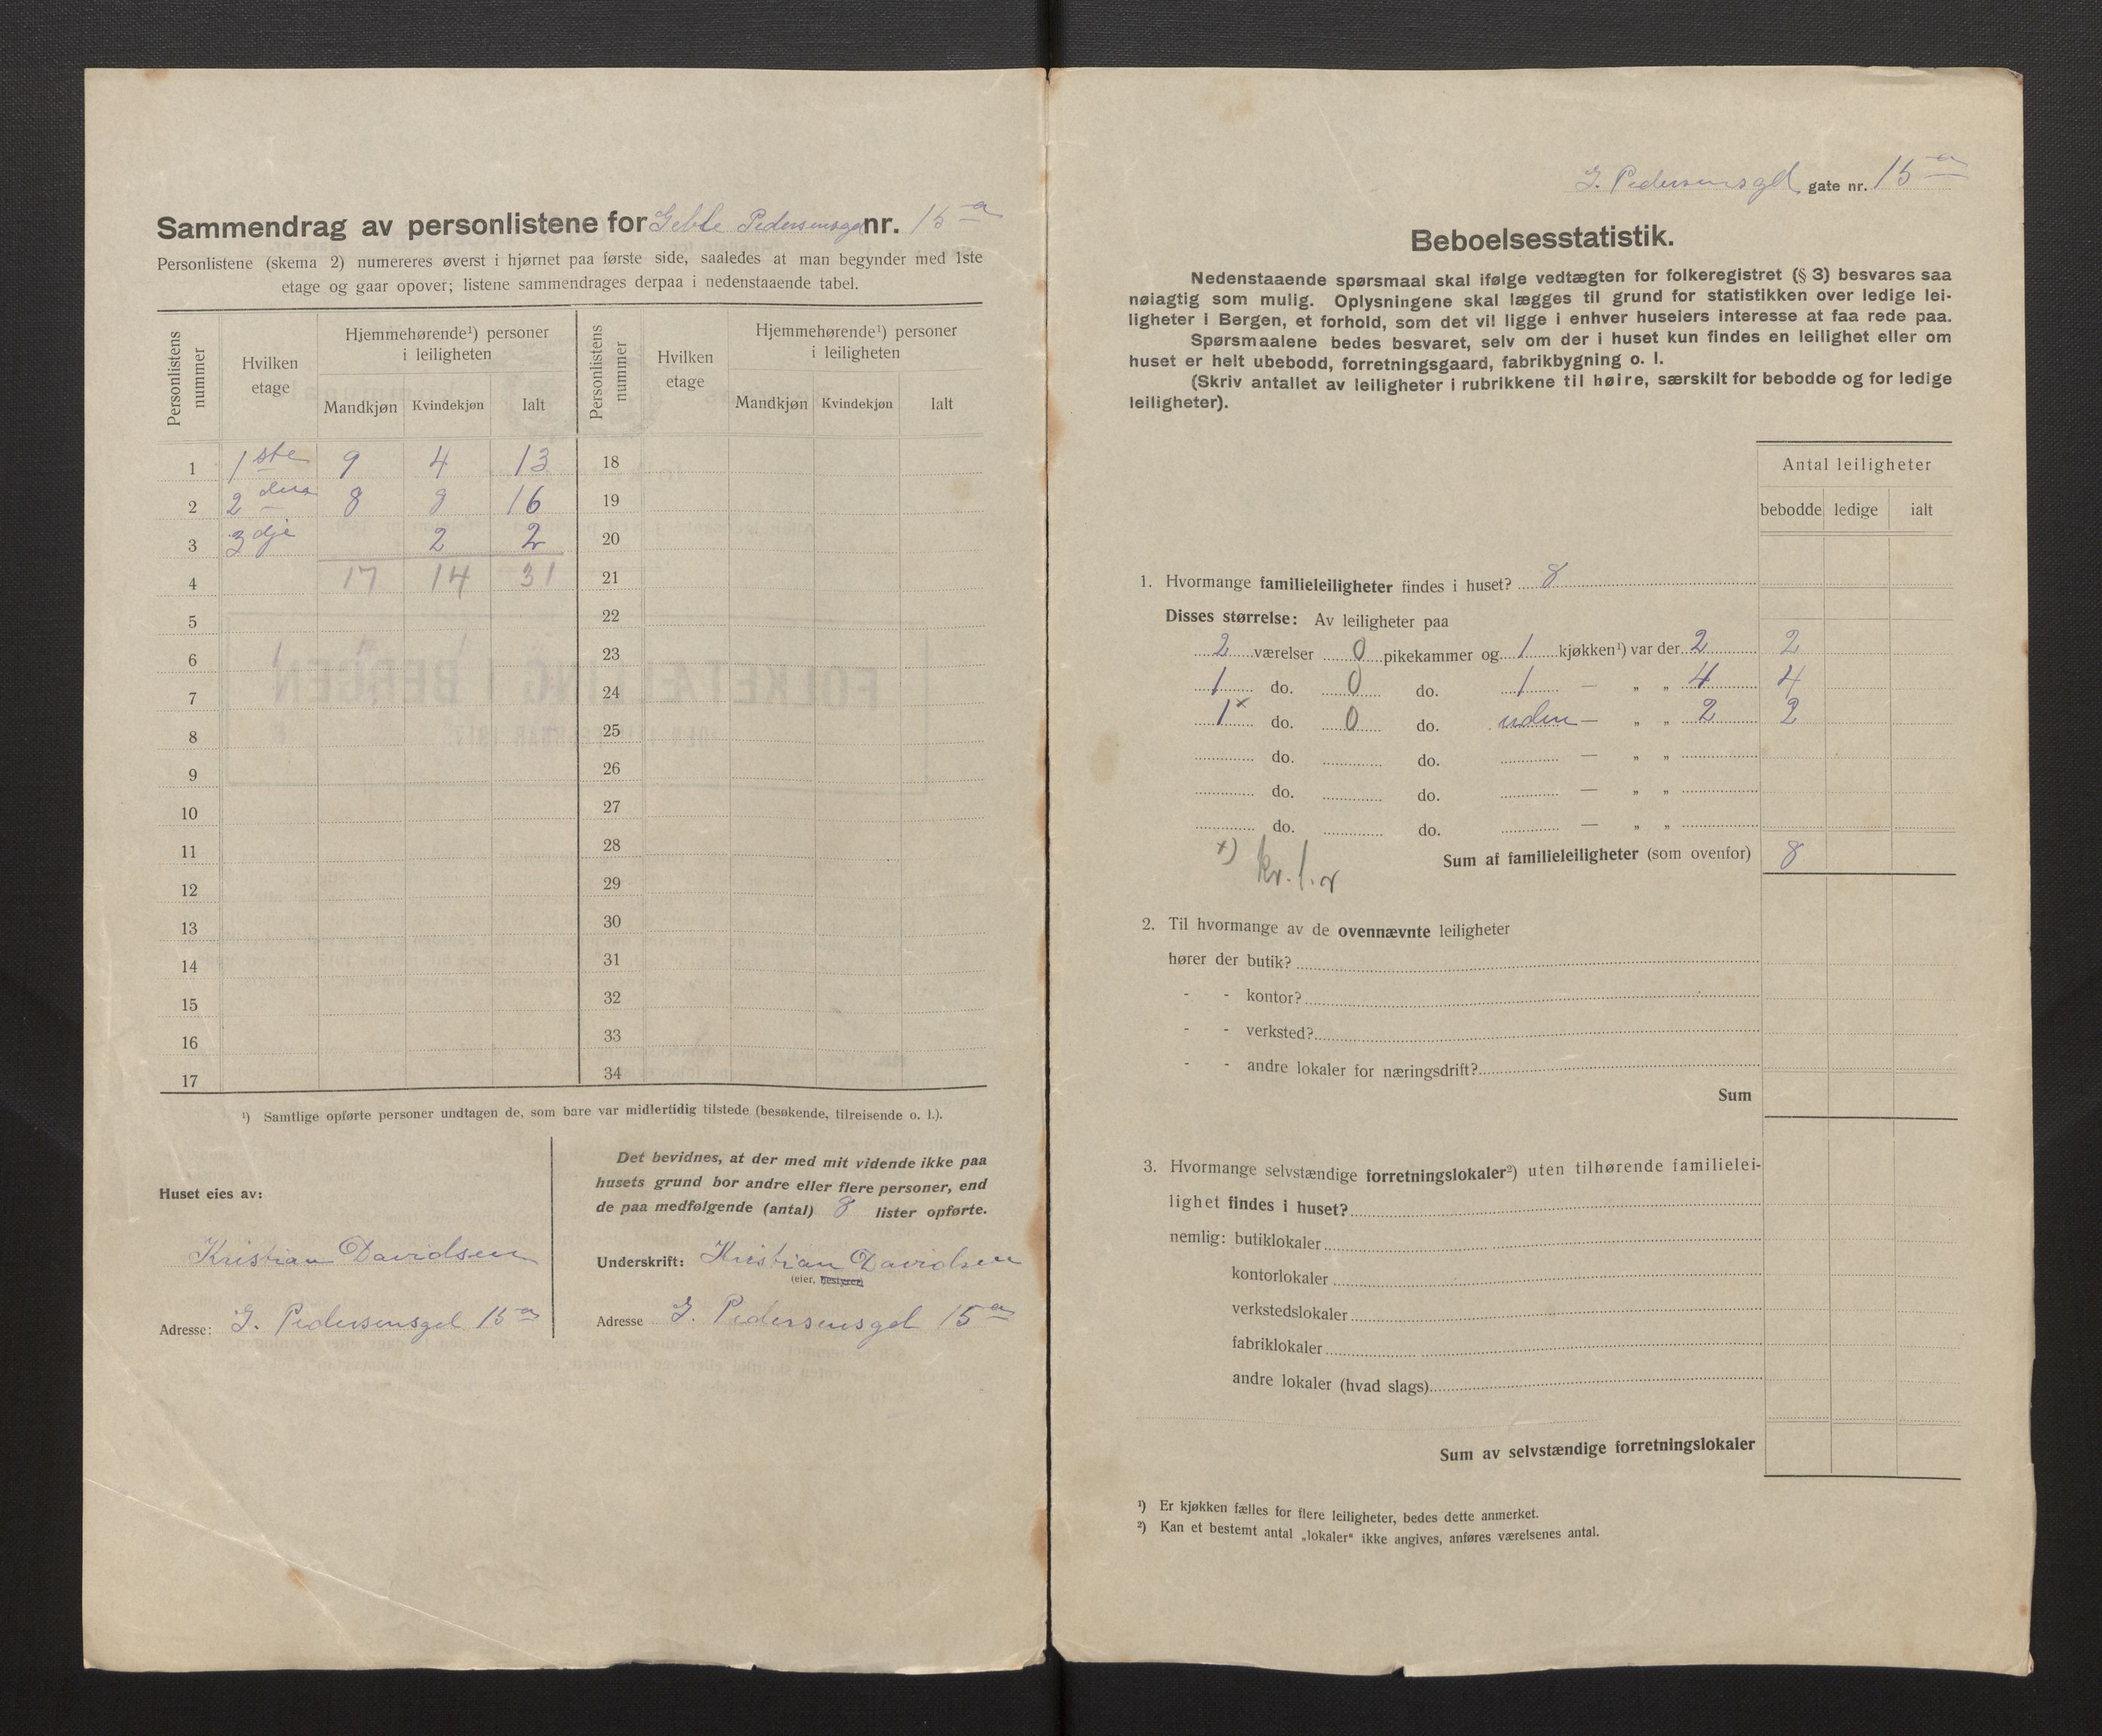 Sammendrag av personlistene for Geble Pedersensgd nr. 15 a
Personlistene (skema 2) numereres øverst i hjørnet paa første side, saaledes at man begynder med 1ste
etage og gaar opover; listene sammendrages derpaa i nedenstaaende tabel.
Personlistens nummer
Hvilken etage
Hjemmehørende¹) personer i leiligheten
Mandkjøn Kvindekjøn Ialt
Personlistens nummer
Hvilken etage
Hjemmehørende¹) personer i leiligheten
Mandkjøn Kvindekjøn Ialt
1 1ste 9 4 13 18
2 2den 8 8 16 19
3 3dje 2 2 20
4 17 14 31 21
5 22
6 23
7 24
8 25
9 26
10 27
11 28
12 29
13 30
14 31
15 32
16 33
17 34
¹) Samtlige opførte personer undtagen de, som bare var midlertidig tilstede (besøkende, tilreisende o. l.).
Huset eies av:
Kristian Davidsen
Adresse: G. Pedersensgd 15 a
Det bevidnes, at der med mit vidende ikke paa
husets grund bor andre eller flere personer, end
de paa medfølgende (antal) 8 lister opførte.
Underskrift: Kristian Davidsen
(eier, bestyrer)
Adresse G. Pedersensgd 15 a
G. Pedersensgd gate nr. 15 a
Beboelsesstatistik.
Nedenstaaende spørsmaal skal ifølge vedtægten for folkeregistret (§ 3) besvares saa
nøiagtig som mulig. Oplysningene skal lægges til grund for statistikken over ledige lei-
ligheter i Bergen, et forhold, som det vil ligge i enhver huseiers interesse at faa rede paa.
Spørsmaalene bedes besvaret, selv om der i huset kun findes en leilighet eller om
huset er helt ubebodd, forretningsgaard, fabrikbygning o. l.
(Skriv antallet av leiligheter i rubrikkene til høire, særskilt for bebodde og for ledige
leiligheter).
Antal leiligheter
bebodde ledige ialt
1. Hvormange familieleiligheter findes i huset? 8
Disses størrelse: Av leiligheter paa
2 værelser 0 pikekammer og 1 kjøkken¹) var der 2 2
1 do. 0 do. 1 — „ „ 4 4
1x do. 0 do. uden — „ „ 2 2
do. do. — „ „
do. do. — „ „
do. do. — „ „
Sum af familieleiligheter (som ovenfor) 8
x) kr. l. v
2. Til hvormange av de ovennævnte leiligheter
hører der butik?
- - kontor?
- - verksted?
- - andre lokaler for næringsdrift?
Sum
3. Hvormange selvstændige forretningslokaler²) uten tilhørende familielei-
lighet findes i huset?
nemlig: butiklokaler
kontorlokaler
verkstedslokaler
fabriklokaler
andre lokaler (hvad slags)
Sum av selvstændige forretningslokaler
¹) Er kjøkken fælles for flere leiligheter, bedes dette anmerket.
²) Kan et bestemt antal „lokaler“ ikke angives, anføres værelsenes antal.